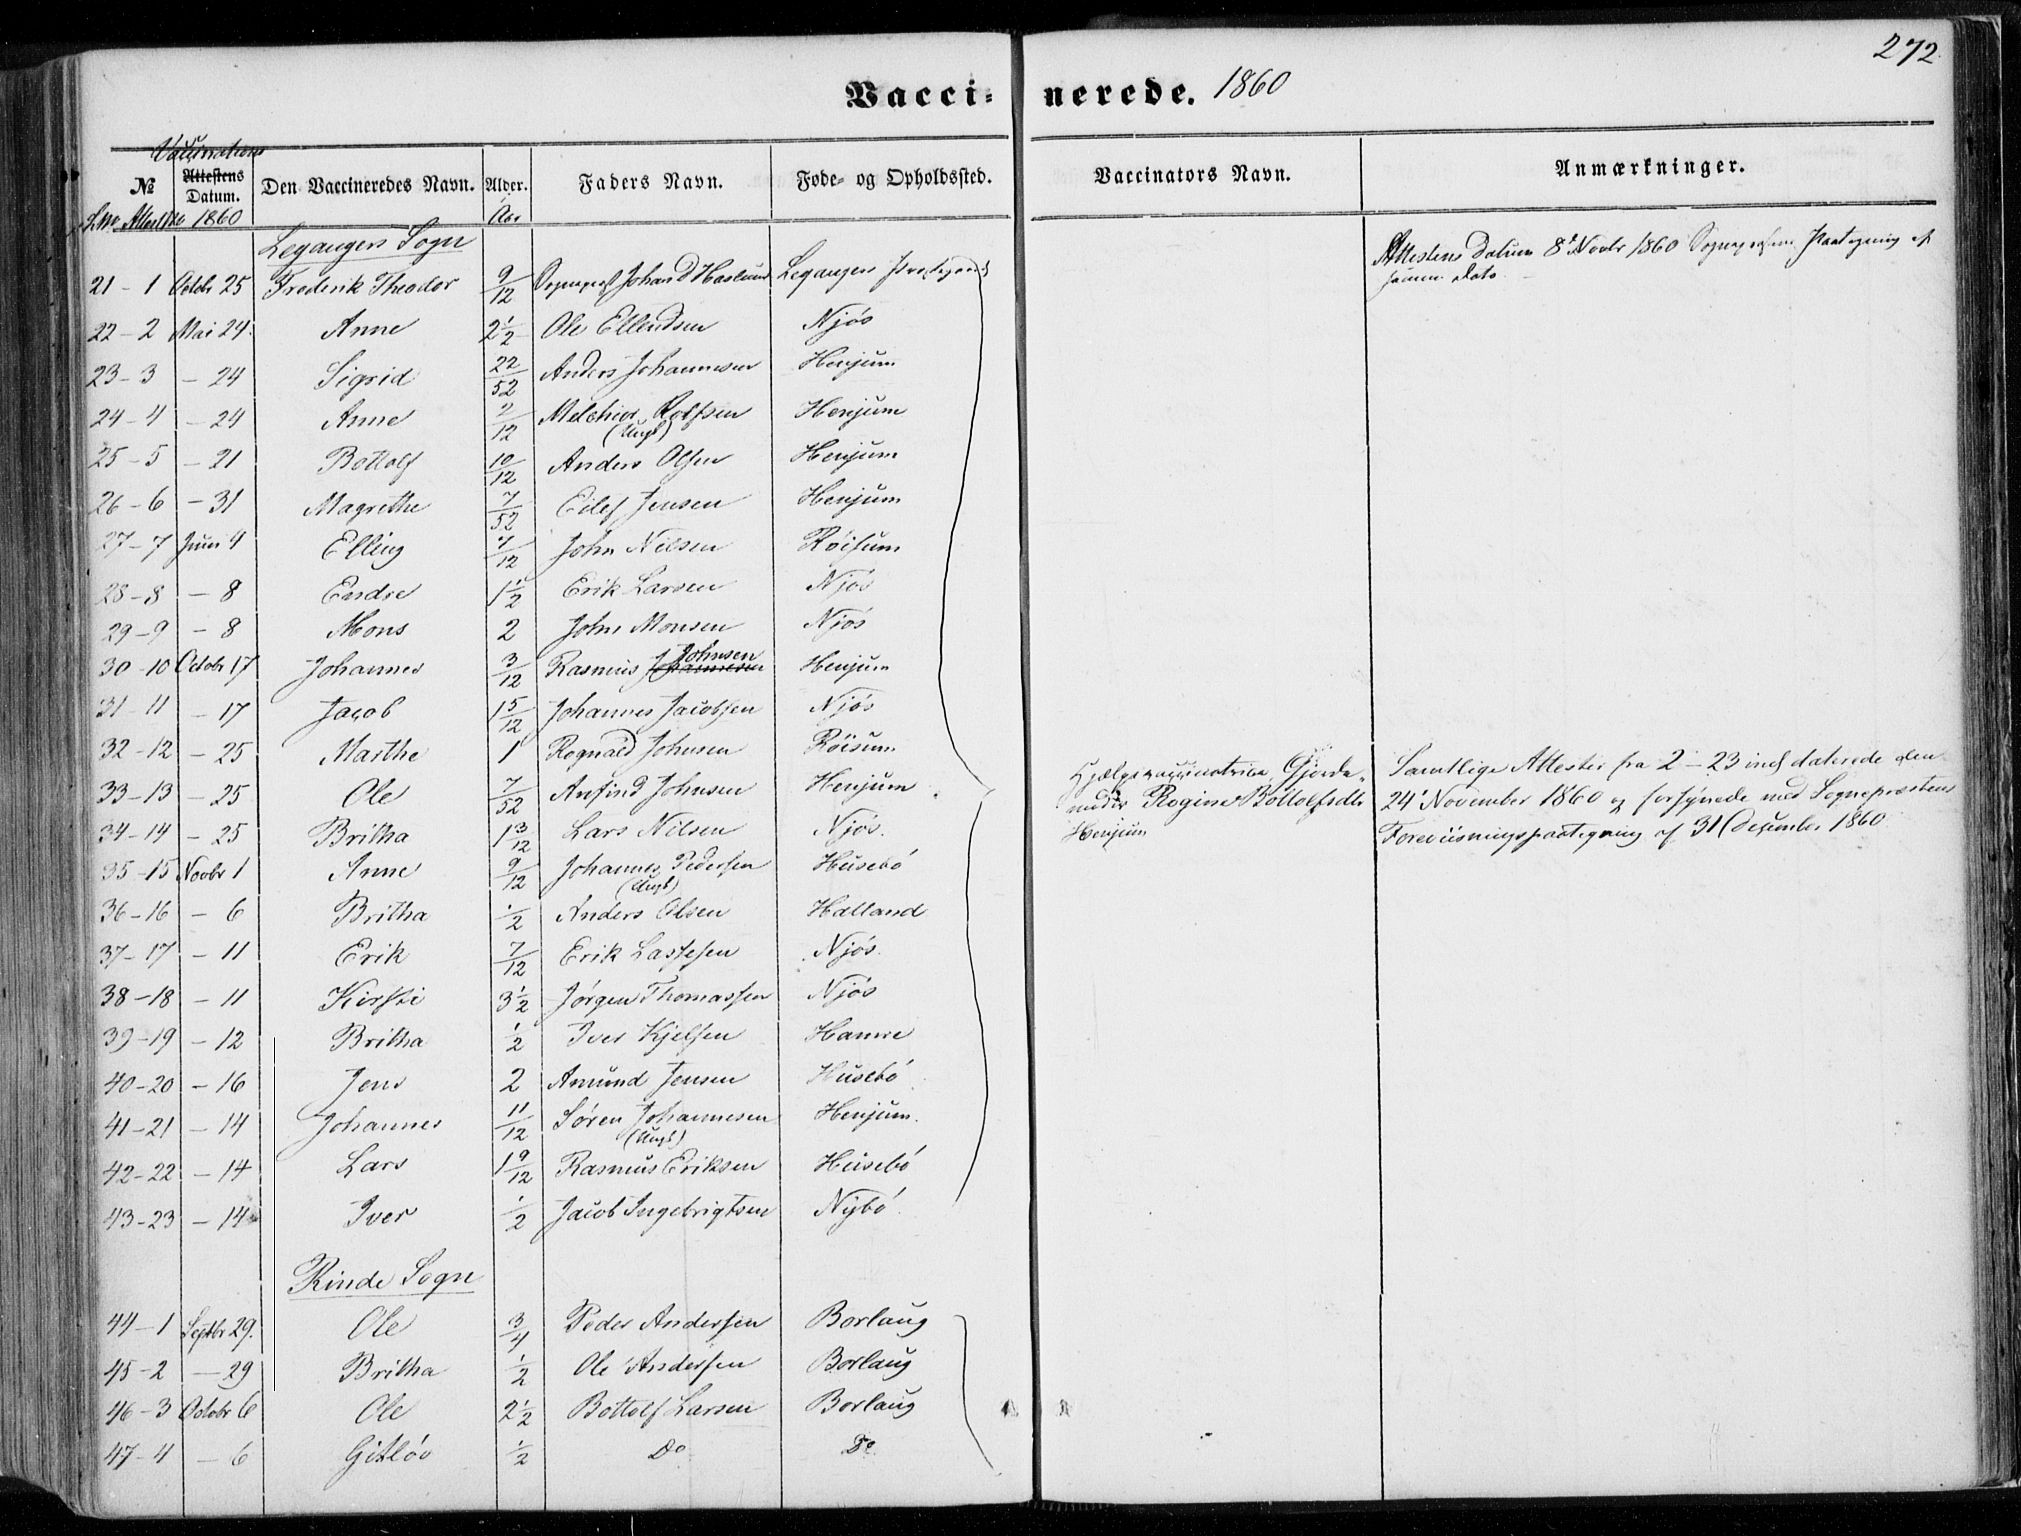 272.
Vacci- nerede. 1860
Vaccinations
№ Attestens Datum. Den Vaccineredes Navn. Alder. Faders Navn. Føde- og Opholdssted. Vaccinators Navn. Anmærkninger.
1860 Aar
Leganger Sogn
21 - 1 Octbr 25 Frederik Theodor 9/12 Sognepræst Johan D Haslund Leganger Præstegaard Attestens Datum 8de Novbr 1860 Sognepræstens Paategning af samme Dato. -
22 - 2 Mai 24. Anne 2 1/2 Ole Ellendsen Njøs
23 - 3 - 24 Sigrid 22/52 Anders Johannesen Henjum
24 - 4 - 24 Anne 2/12 Melchior Rolfsen (Ungk) Henjum
25 - 5 - 21 Bottolf 10/12 Anders Olsen Henjum
26 - 6 - 31 Magrethe 7/52 Eilef Jensen Henjum
27 - 7 Juni 4 Elling 7/12 John Nilsen Röisum
28 - 8 - 8 Endre 1 1/2 Erik Larsen Njøs
29 - 9 - 8 Mons 2 John Monsen Njøs
30 - 10 Octobr 17 Johannes 3/12 Rasmus Johannesen Johnsen Henjum
31 - 11 - 17 Jacob 15/12 Johannes Jacobsen Njøs
32 - 12 - 25 Marthe 1 Rognald Johnsen Röisum
33 - 13 - 25 Ole 7/52 Anfind Johnsen Henjum
34 - 14 - 25 Britha 1 3/12 Lars Nilsen Njøs.
Hjælpevaccinatrice, Gjorde-
moder Rogine Bottolfsdtr
Henjum
Samtlige Attester fra 2 - 23 incl daterede den
24' November 1860 og forsynede med Sognepræstens
Foreviisningspaategning af 31 December 1860
35 - 15 Novbr 1 Anne 9/12 Johannes Pedersen (Ungk) Husebø
36 - 16 - 6 Britha 1/2 Anders Olsen Halland
37 - 17 - 11 Erik 7/12 Erik Lassesen Njøs.
38 - 18 - 11 Kirsti 3 1/2 Jørgen Thomassen Njøs
39 - 19 - 12 Britha 1/2 Iver Kjelsen Hamre
40 - 20 - 16 Jens 2 Amund Jensen Husebø
41 - 21 - 14 Johannes 11/12 Søren Johannesen (Ungk) Henjum.
42 - 22 - 14 Lars 1 9/12 Rasmus Eriksen Husebø
43 - 23 - 14 Iver 1/2 Jacob Ingebrigtsen Nybø.
Rinde Sogn
44 - 1 Septbr 29. Ole 3/4 Peder Andersen Borlaug
45 - 2 - 29 Britha 1/2 Ole Andersen Borlaug
46 - 3 Octobr 6 Ole 2 1/2 Bottolf Larsen Borlaug
47 - 4 - 6 Gitløv 1/2 Do Do